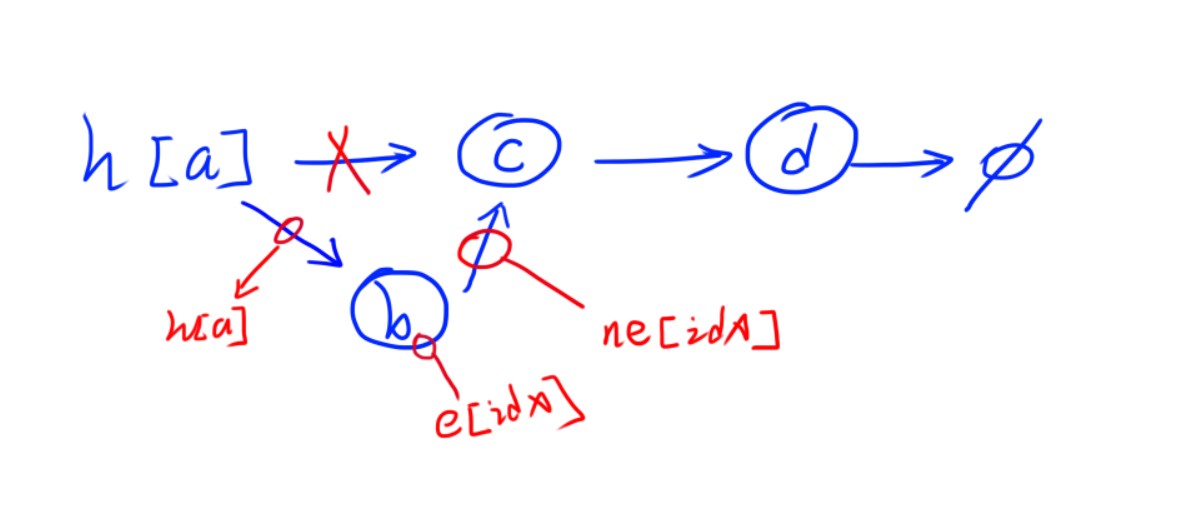 h[a] c d ∅
h[a] b ne[idx]
e[idx]